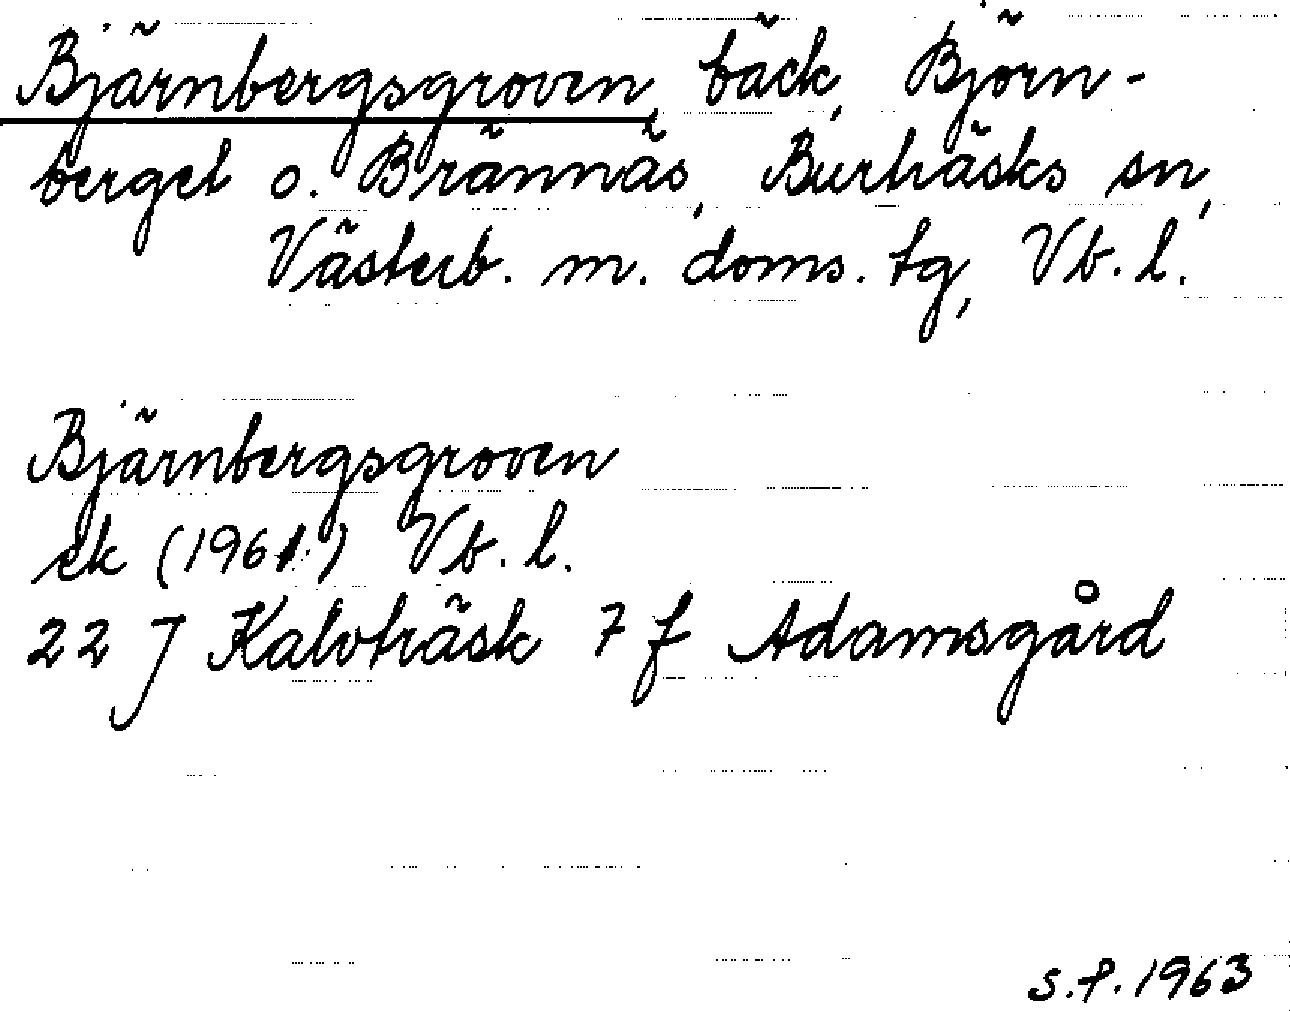 Bjärnbergsgroven, bäck, Björn-
berget o. Brännäs, Burträsks sn,
Västerb. m. doms. tg, Vb. l.
Bjärnbergsgroven
ek (1961) Vb. l.
22 J Kalvträsk 7 f Adamsgård
s.f. 1963